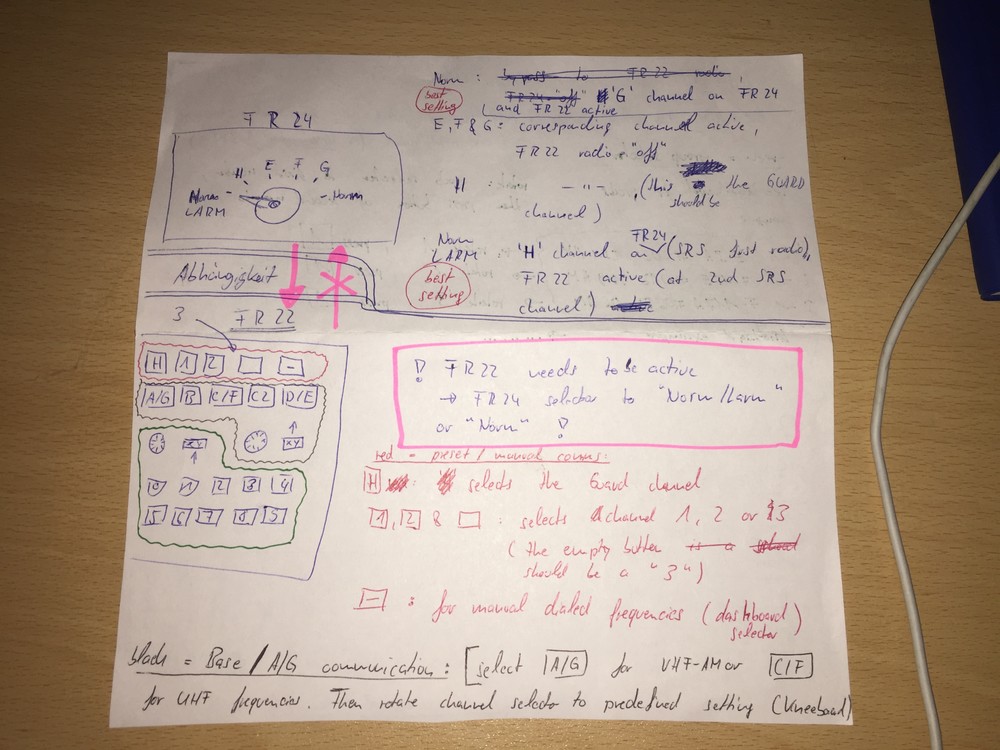 FR 24
H E F G
Norm
LARM
Norm
Abhängigkeit
3
FR 22
H 1 2 -
A/G B C/F C2 D/E
xy xy
0 1 2 3 4
5 6 7 8 9
Norm : bypass to FR 22 radio,
best setting
FR 24 "off" 'G' channel on FR 24
and FR 22 active
E, F & G : corresponding channel active,
FR 22 radio "off"
H : — " — , (this should be the GUARD
channel)
Norm
LARM
best setting
'H' channel on FR24 (SRS - first radio),
FR 22 active (at 2nd SRS
channel)
! FR 22 needs to be active
→ FR 24 selector to "Norm/Larm"
or "Norm" !
red = preset / manual comms:
H : selects the Guard channel
1, 2 & : selects channel 1, 2 or 3
(the empty button is a
should be a "3")
- : for manual dialed frequencies (dashboard
selector)
black = Base / A/G communication : [select A/G for VHF-AM or C/F
for UHF frequencies. Then rotate channel selector to predefined setting (Kneeboard)